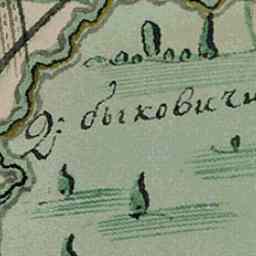 Д: быковичи